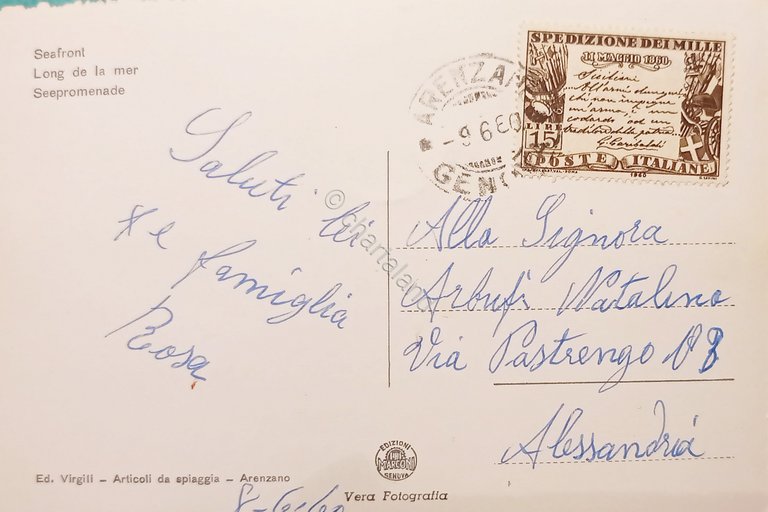 Seafront
Long de la mer
Seepromenade
ARENZANO
-9 6 60
GENOVA
SPEDIZIONE DEI MILLE
11 MAGGIO 1860
Siciliani
All'armi dunque
chi non impugna
un'arma, è un
codardo od un
traditore della patria
G. Garibaldi
LIRE 15
POSTE ITALIANE
1960
Saluti lei
e famiglia
Rosa
© chartaland
Alla Signora
Natalino
Via Pastrengo N 8
Alessandria
EDIZIONI
MARCONI
GENOVA
Ed. Virgili - Articoli da spiaggia - Arenzano
Vera Fotografia
8-6-60